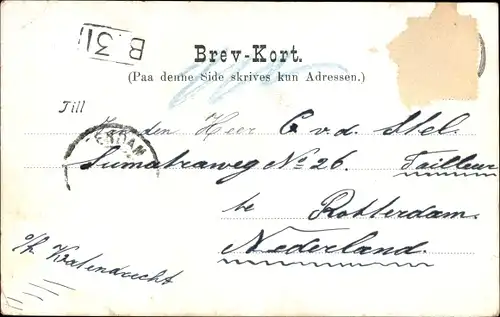 B. 31
Brev-Kort.
(Paa denne Side skrives kun Adressen.)
Till
Aan den Heer C. v. d. Stel.
Sumatraweg No 26. Tailleur
te Rotterdam.
Nederland.
o/k Katendrecht